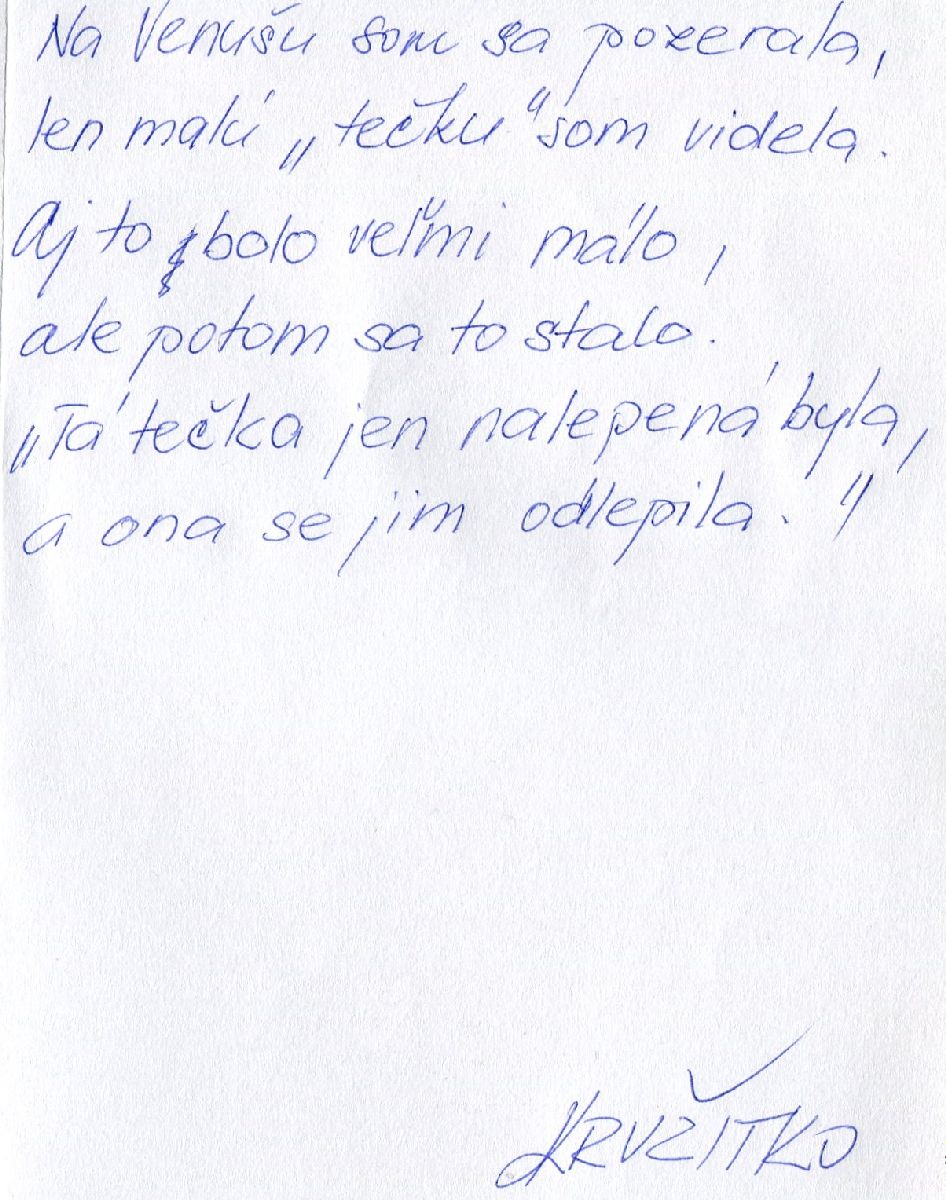 Na Venušu som sa pozerala,
len malú „tečku“ som videla.
Aj to bolo veľmi málo,
ale potom sa to stalo.
„Tá tečka jen nalepená byla,
a ona se jim odlepila.“
KRUŽÍTKO